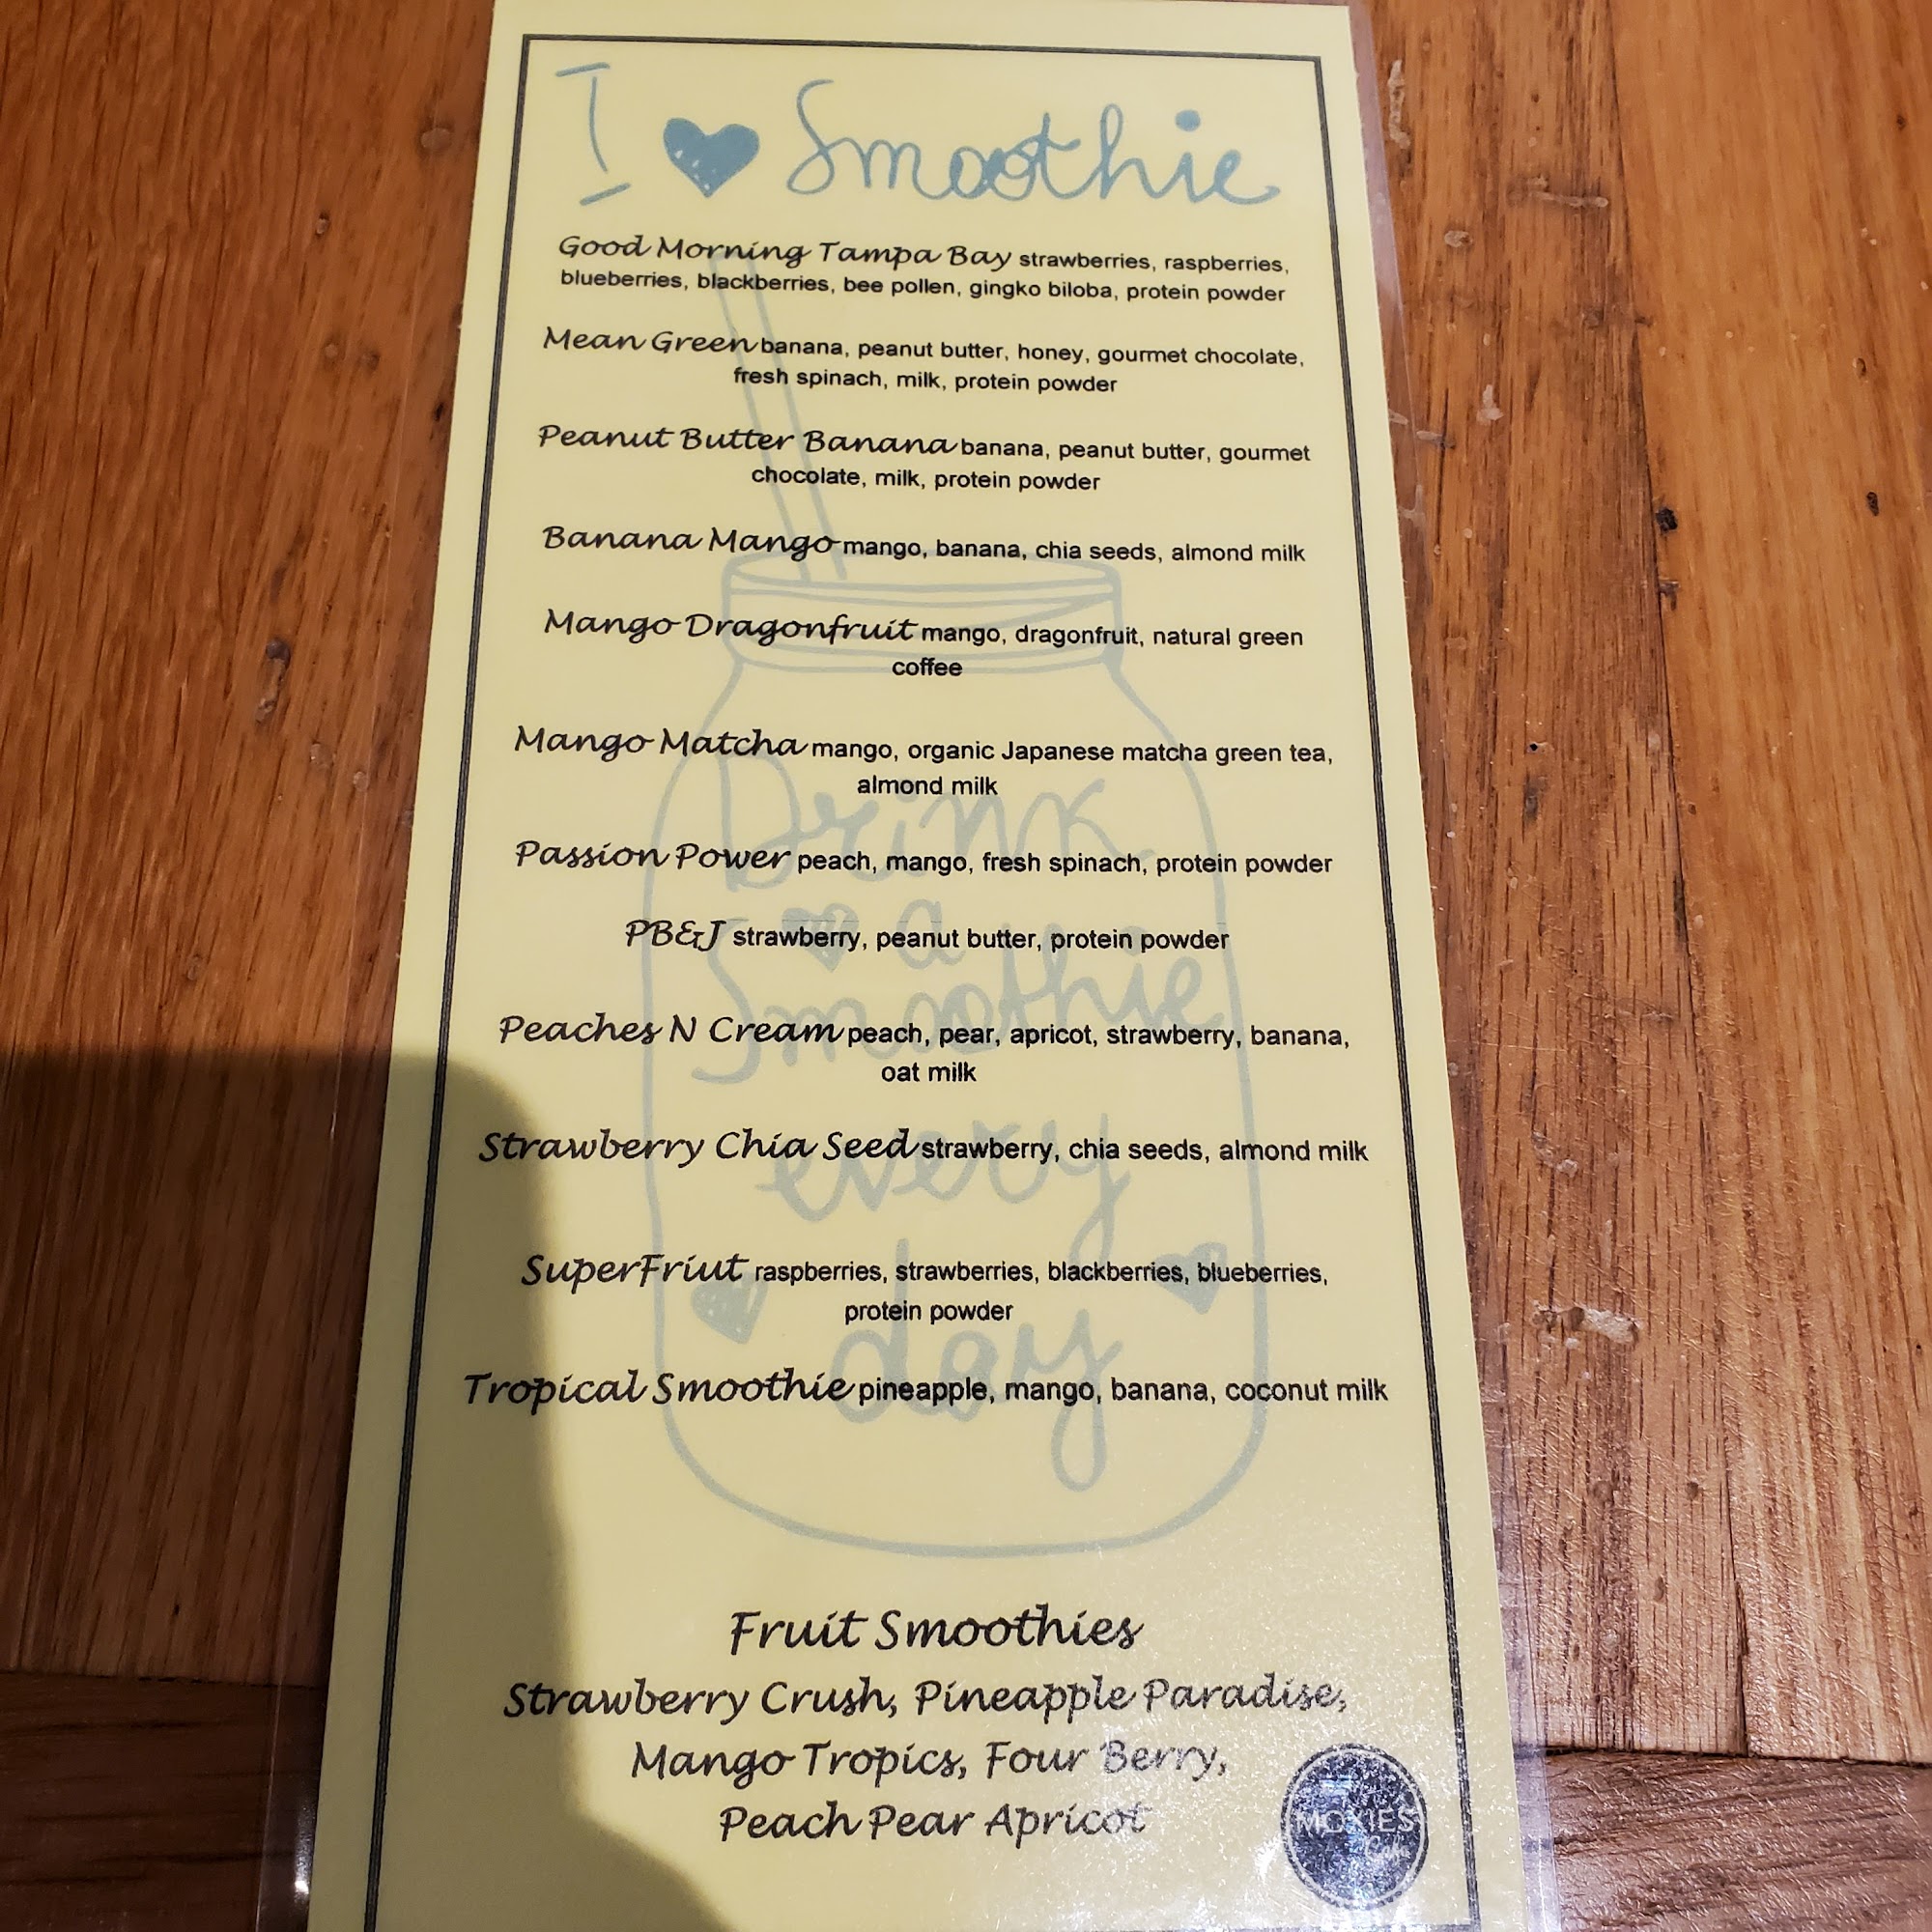 I ♥ Smoothie
Good Morning Tampa Bay strawberries, raspberries,
blueberries, blackberries, bee pollen, gingko biloba, protein powder
Mean Green banana, peanut butter, honey, gourmet chocolate,
fresh spinach, milk, protein powder
Peanut Butter Banana banana, peanut butter, gourmet
chocolate, milk, protein powder
Banana Mango mango, banana, chia seeds, almond milk
Mango Dragonfruit mango, dragonfruit, natural green
coffee
Mango Matcha mango, organic Japanese matcha green tea,
almond milk
Drink
Passion Power peach, mango, fresh spinach, protein powder
a
PB&J strawberry, peanut butter, protein powder
Smoothie
Peaches N Cream peach, pear, apricot, strawberry, banana,
oat milk
Strawberry Chia Seed strawberry, chia seeds, almond milk
every
SuperFriut raspberries, strawberries, blackberries, blueberries,
protein powder
day
Tropical Smoothie pineapple, mango, banana, coconut milk
Fruit Smoothies
Strawberry Crush, Pineapple Paradise,
Mango Tropics, Four Berry,
Peach Pear Apricot
MOXIES